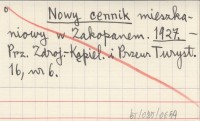 Nowy cennik mieszka-
niowy w Zakopanem. 1927 –
Prz. Zdroj.-Kąpiel. i Przew. Turyst.
16, nr 6.